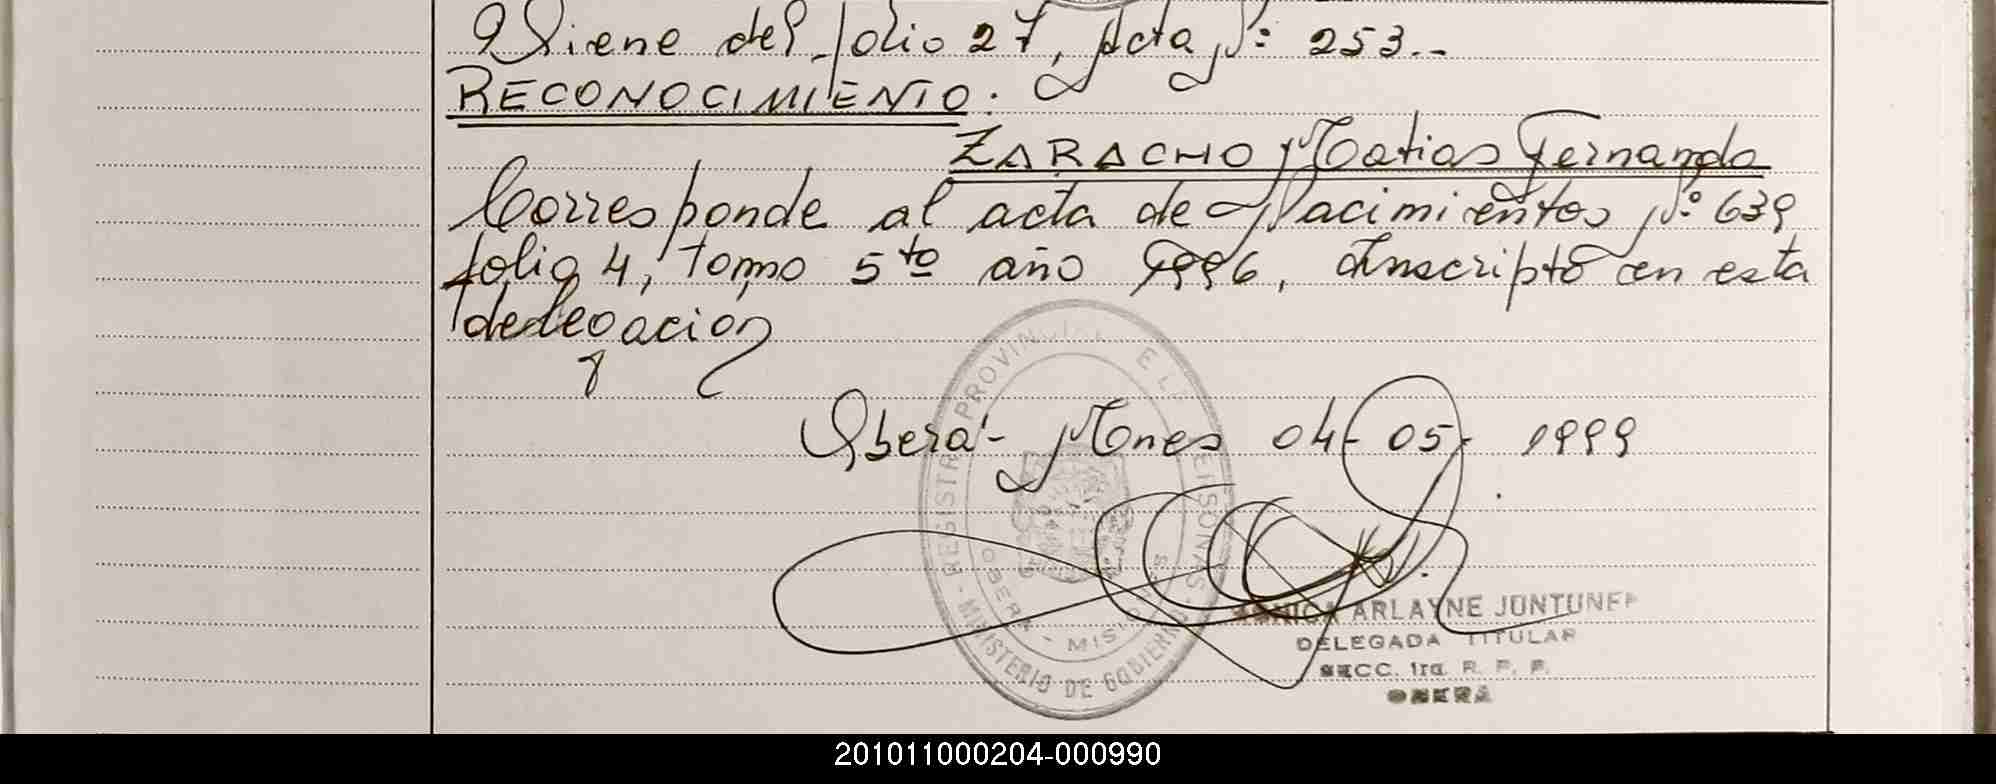 Viene del folio 27, Acta Nº: 253.--
RECONOCIMIENTO.
ZARACHO Matias Fernando
Corresponde al acta de Nacimientos Nº: 639
folio 4, tomo 5to año 1996, Inscripto en esta
delegación
Oberá - Mnes 04-05-1999
REGISTRO PROVINCIAL DE LAS PERSONAS
MINISTERIO DE GOBIERNO
OBERA - MISIONES
ARLAYNE JONTUNEN
DELEGADA TITULAR
SECC. 1ra. R. P. P.
OBERA
201011000204-000990